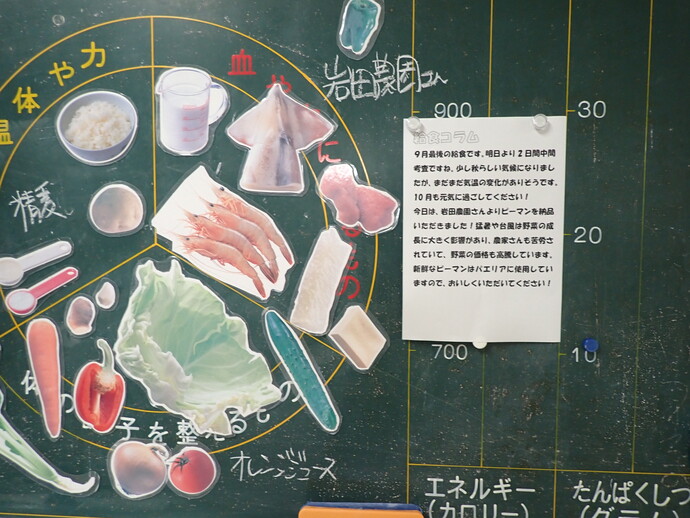 力や体温
血や
にるもの
岩田農園さん
精麦
900
30
20
700
10
給食コラム
9月最後の給食です。明日より2日間中間
考査ですね。少し秋らしい気候になりまし
たが、まだまだ気温の変化がありそうです。
10月も元気に過ごしてください!
今日は、岩田農園さんよりピーマンを納品
いただきました!猛暑や台風は野菜の成
長に大きく影響があり、農家さんも苦労さ
れていて、野菜の価格も高騰しています。
新鮮なピーマンはパエリアに使用してい
ますので、おいしくいただいてください!
体の
子を整えるもの
オレンジジュース
エネルギー
(カロリー)
たんぱくしつ
(グラム)